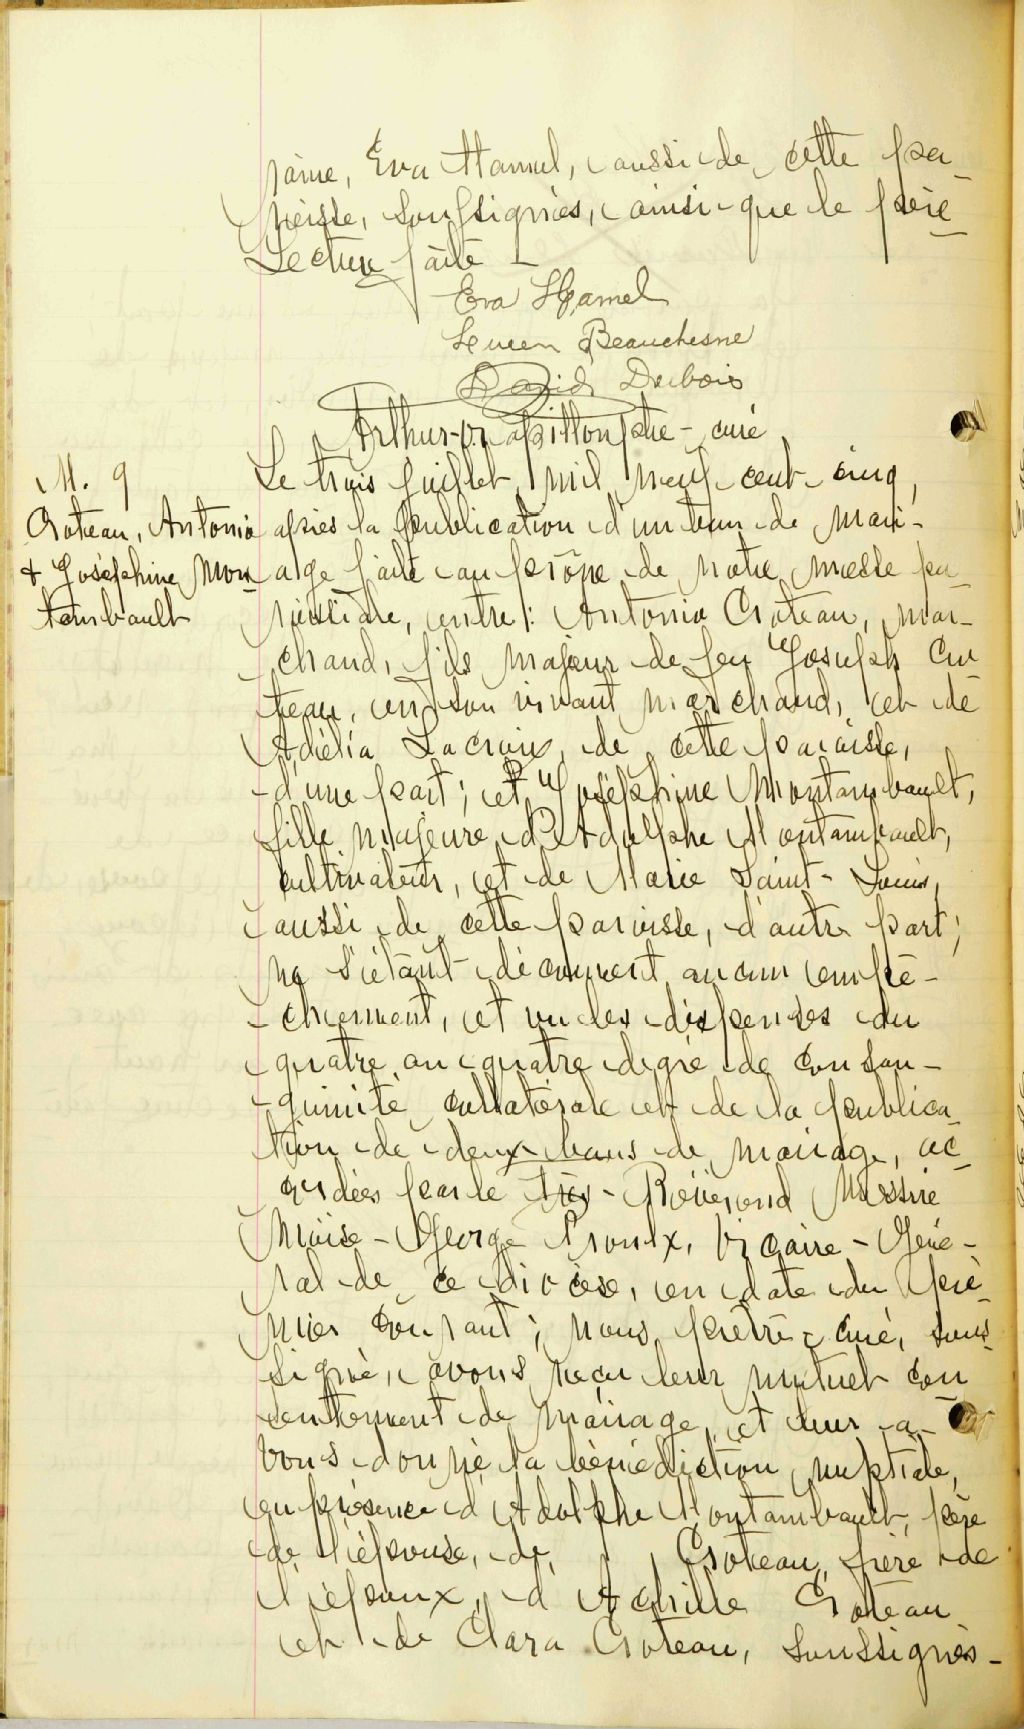 raine, Eva Hamel, aussi de cette pa-
roisse, soussignées, ainsi que le père
Lecture faite
Eva Hamel
Lucien Beauchesne
David Dubois
Arthur-O. Papillon ptre - curé
M. 9
Croteau, Antonio
& Joséphine Mon
tambault
Le trois juillet mil neuf cent cinq,
après la publication d'un ban de mari-
age faite au prône de notre messe pa-
roissiale, entre: Antonio Croteau, mar-
chand, fils majeur de feu Joseph Cro
teau, en son vivant marchand, et de
Adélia Lacroix, de cette paroisse,
d'une part; et Joséphine Montambault,
fille majeure d'Adolphe Montambault,
cultivateur, et de Marie Saint-Louis,
aussi de cette paroisse, d'autre part;
ne s'étant découvert aucun empê-
chement, et vu les dispenses du
quatre au quatre degré de consan-
guinité collatérale et de la publica-
tion de deux bans de mariage, ac-
cordées par le très-Révérend Messire
Moïse-George Proulx, Vicaire-Géné-
ral de ce diocèse, en date du pre-
mier courant; nous, prêtre, curé, sous-
signé, avons reçu leur mutuel con
sentement de mariage, et leur a-
vons donné la bénédiction nuptiale,
en présence d'Adolphe Montambault, père
de l'épouse, de Croteau, frère de
l'époux, d'Achille Croteau
et de Clara Croteau, soussignés-